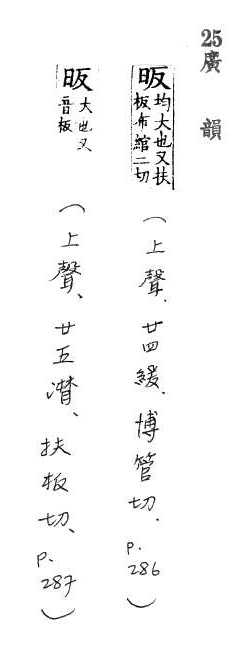 25廣韻
昄 均大也又扶板布綰二切
(上聲.廿四緩.博管切.p.286)
昄 大也又音板
(上聲、廿五潸、扶板切、p.287)